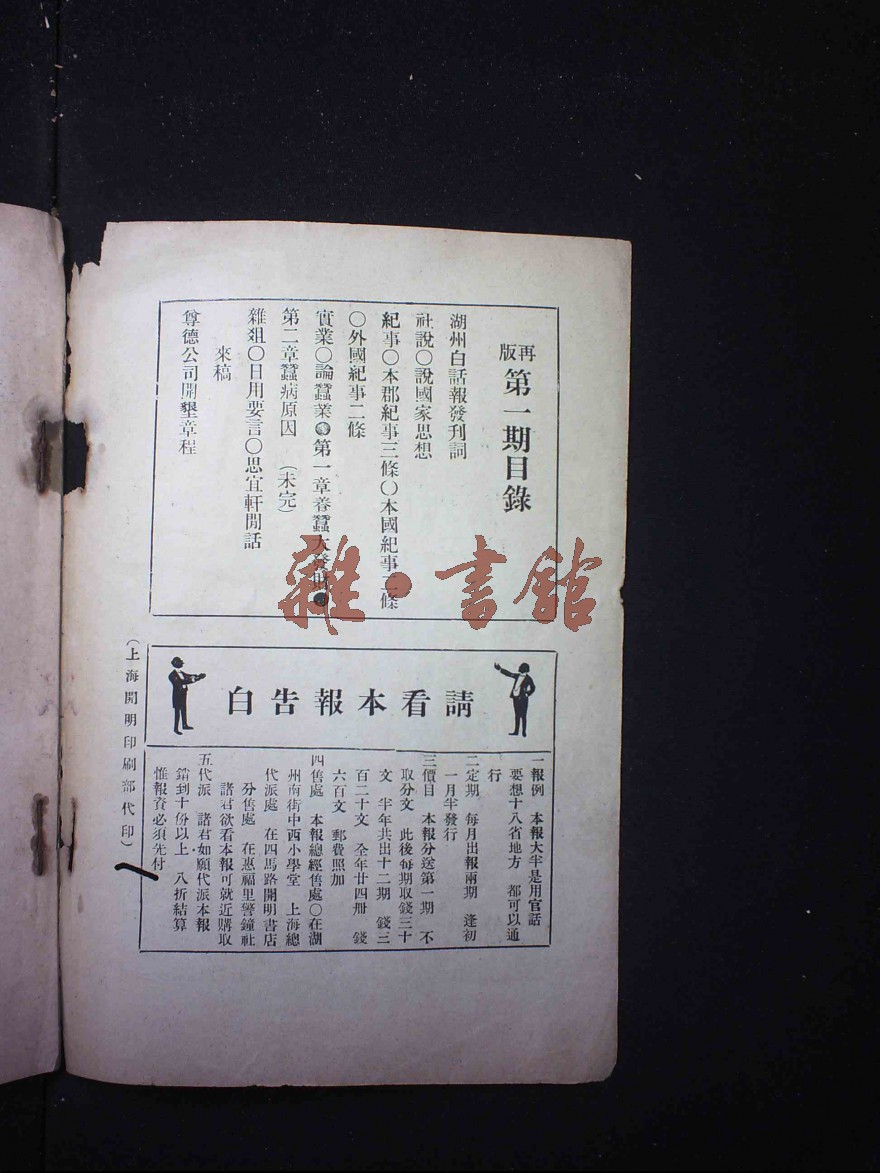 再版 第一期目錄
湖州白話報發刊詞
社說○說國家思想
紀事○本郡紀事三條○本國紀事二條
○外國紀事二條
實業○論蠶業●第一章養蠶大發財●
第二章蠶病原因 (未完)
雜俎○日用要言○思宜軒閒話
來稿
尊德公司開墾章程
雜·書館
請看本報告白
一報例 本報大半是用官話
要想十八省地方 都可以通
行
二定期 每月出報兩期 逢初
一月半發行
三價目 本報分送第一期 不
取分文 此後每期取錢三十
文 半年共出十二期 錢三
百二十文 全年廿四冊 錢
六百文 郵費照加
四售處 本報總經售處○在湖
州南街中西小學堂 上海總
代派處 在四馬路開明書店
分售處 在惠福里警鐘社
諸君欲看本報可就近購取
五代派 諸君如願代派本報
銷到十份以上 八折結算
惟報資必須先付
(上海開明印刷部代印)